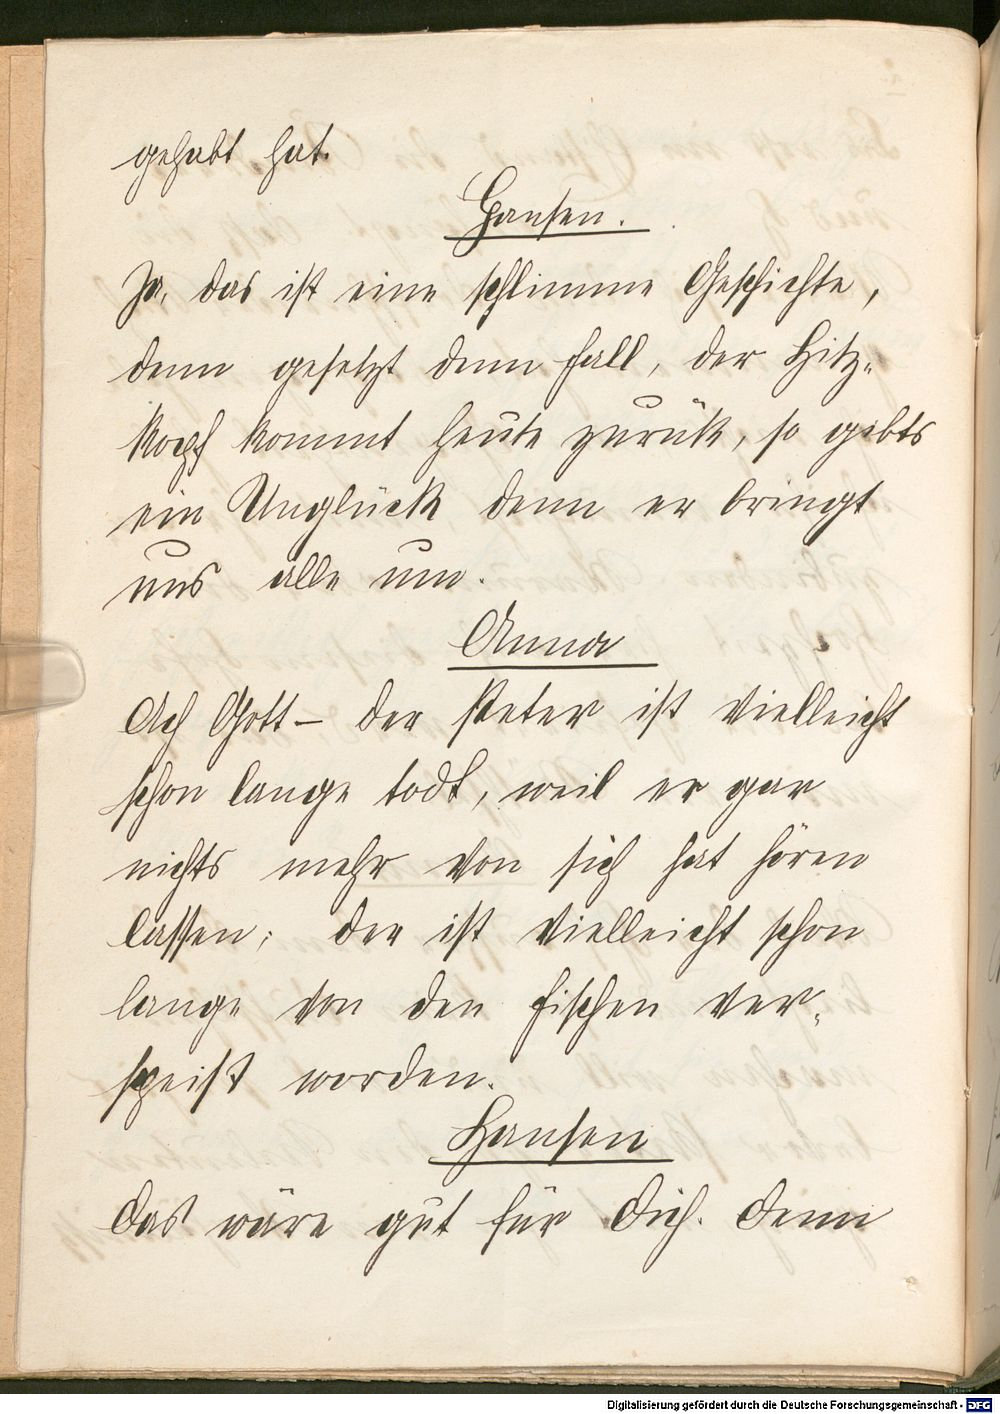 gehabt hat.
Hansen.
Ja, das ist eine schlimme Geschichte,
denn gesetzt denn Fall, der Hitz-
kopf kommt heute zurük, so gebts
ein Unglück denn er bringt
uns alle um.
Anna
Ach Gott – der Peter ist vielleicht
schon lange todt, weil er gar
nichts mehr von sich hat hören
lassen; der ist vielleicht schon
lange von den Fischen ver-
speist worden.
Hansen
Das wäre gut für Dich. Denn
Digitalisierung gefördert durch die Deutsche Forschungsgemeinschaft - DFG